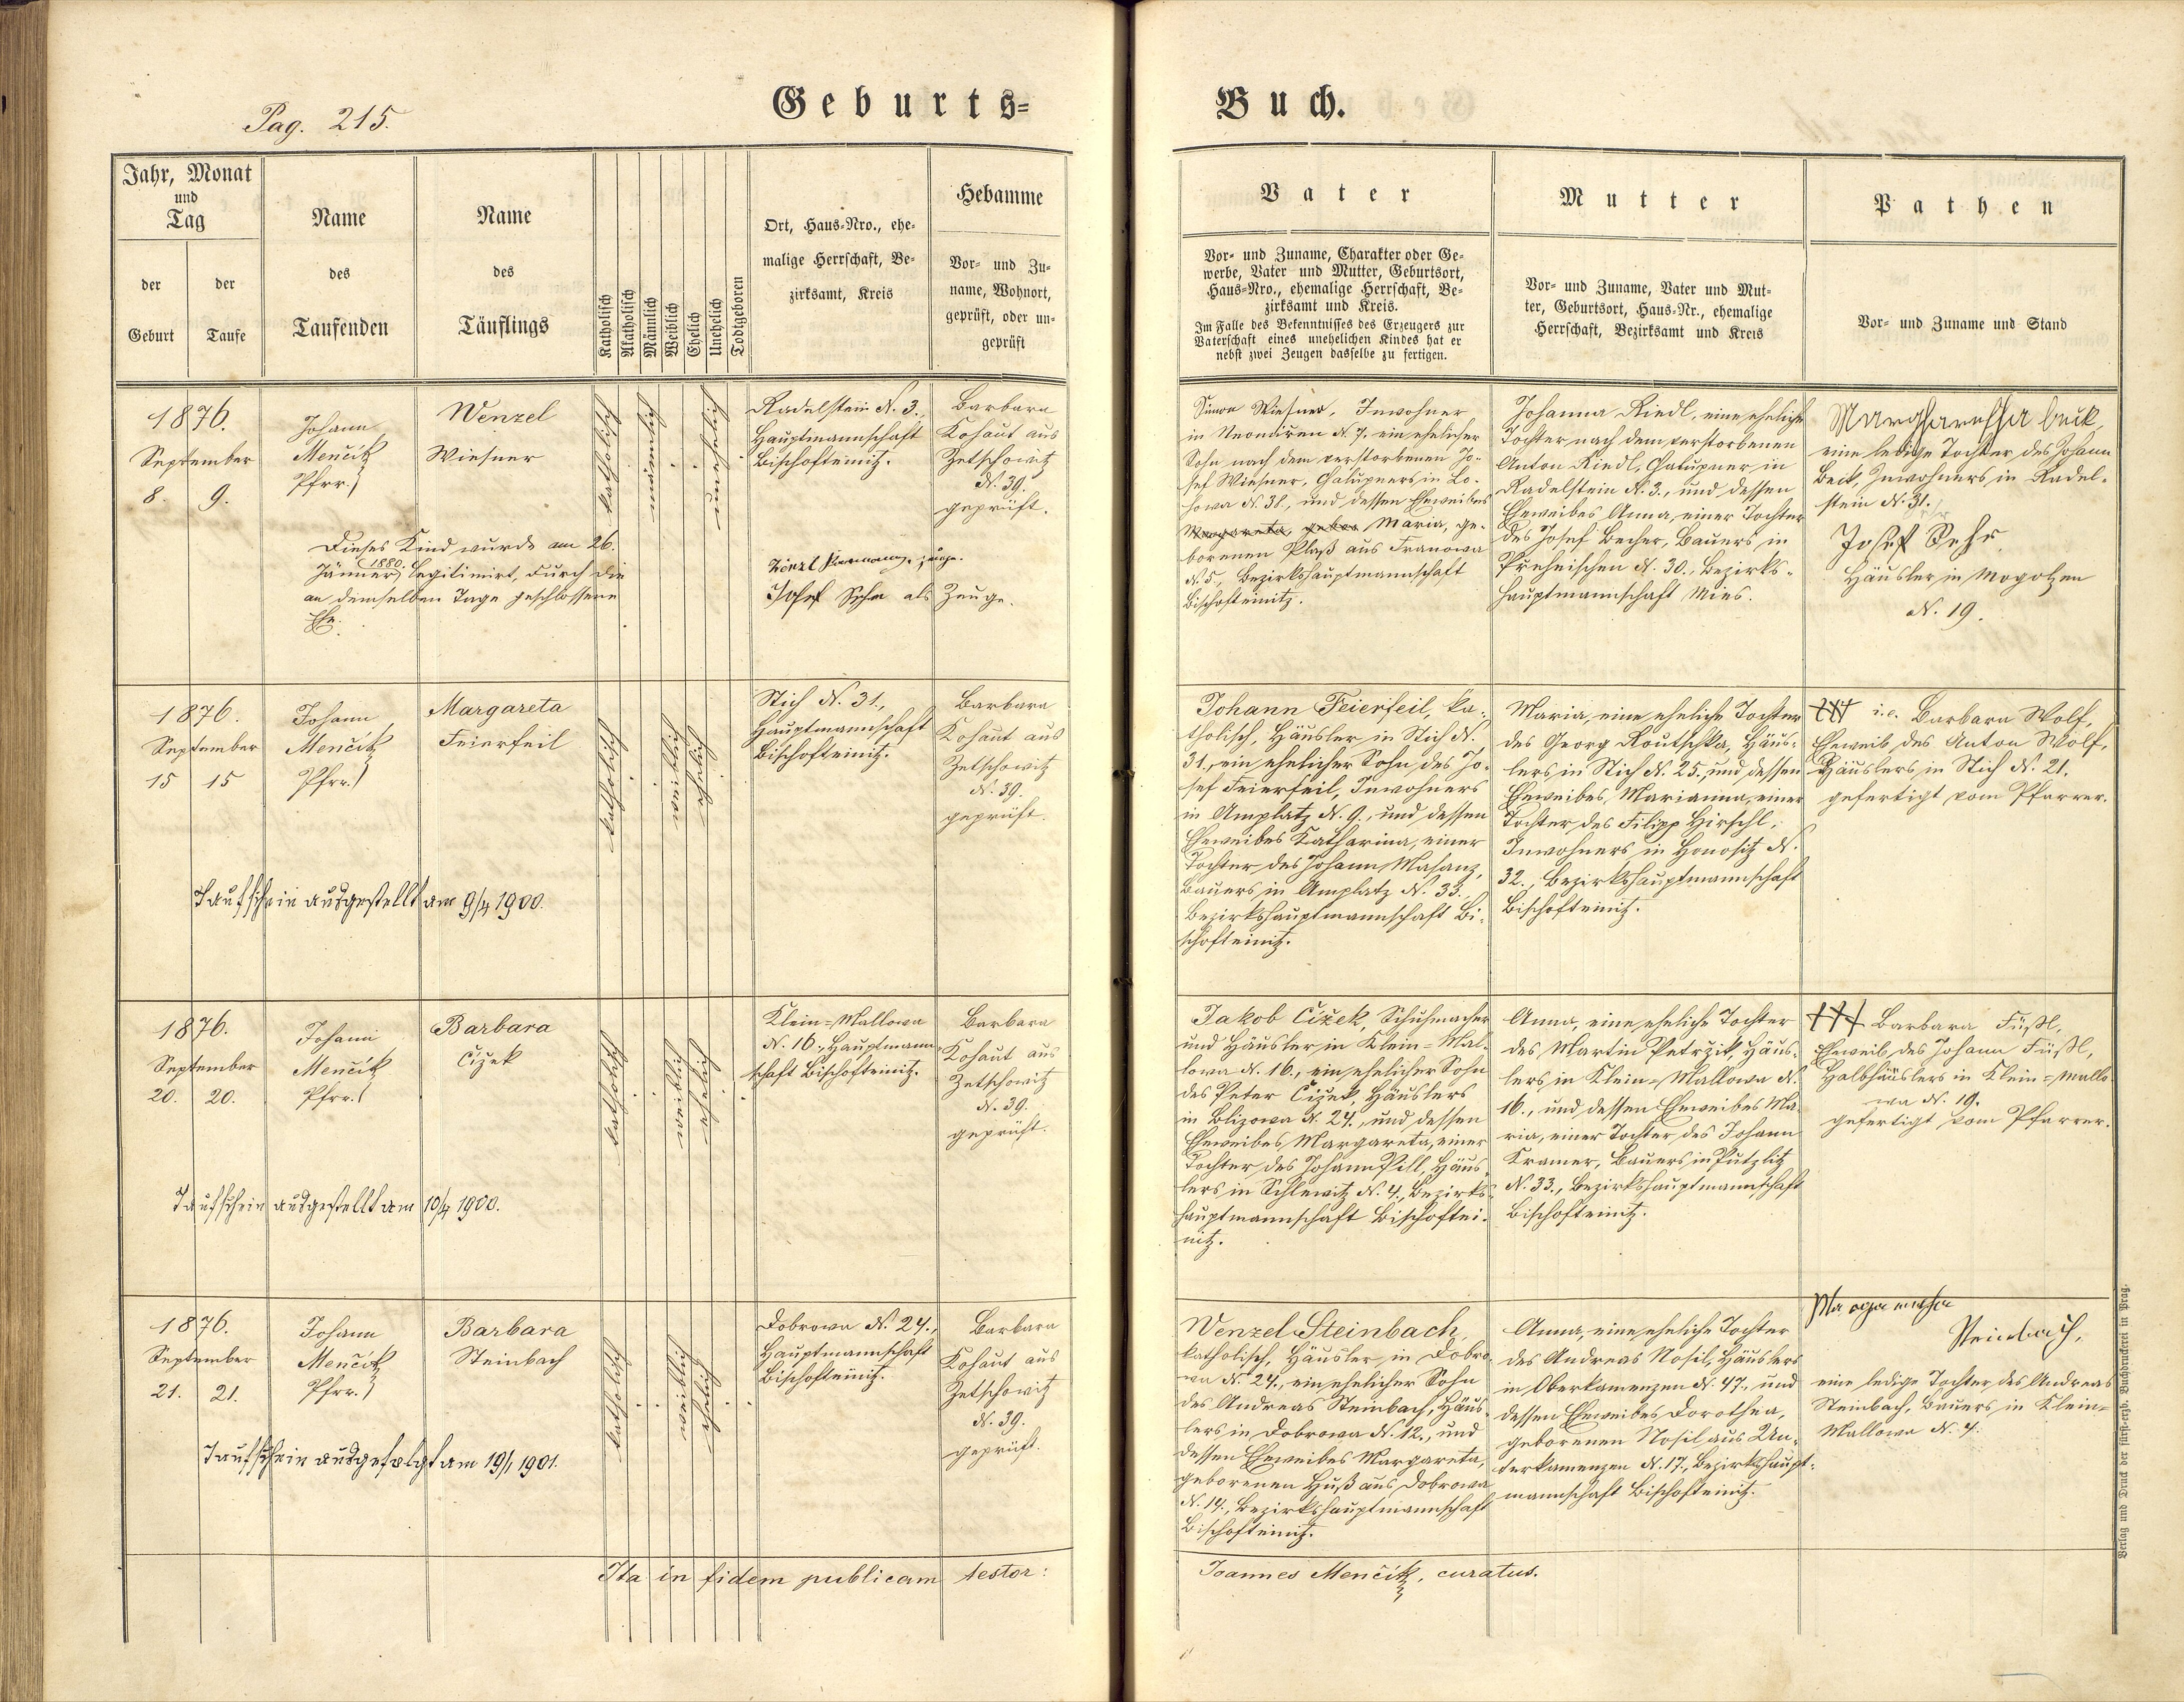 Pag. 215.
Geburts=
Jahr, Monat
und
Tag
der
Geburt
der
Taufe
Name
des
Taufenden
Name
des
Täuflings
Katholisch
Akatholisch
Männlich
Weiblich
Ehelich
Unehelich
Todtgeboren
Ort, Haus=Nro., ehe=
malige Herrschaft, Be=
zirksamt, Kreis
Hebamme
Vor= und Zu=
name, Wohnort,
geprüft, oder un=
geprüft
1876.
September
8. 9.
Johann
Menčik
Pfrr.
Wenzel
Wiesner
katholisch
männlich
unehelich
Radelstein N. 3.,
Hauptmannschaft
Bischofteinitz.
Barbara
Kohaut aus
Zetschowitz
N. 39.
geprüft.
Dieses Kind wurde am 26.
Jänner 1880. legitimirt, durch die
an demselben Tage geschlossene
Ehe.
Josef Sehr als Zeuge.
1876.
September
15 15
Johann
Menčik
Pfrr.
Margareta
Feierfeil
katholisch
weiblich
ehelich
Stich N. 31.,
Hauptmannschaft
Bischofteinitz.
Barbara
Kohaut aus
Zetschowitz
N. 39.
geprüft.
Taufschein ausgestellt am 9/4 1900.
1876.
September
20. 20.
Johann
Menčik
Pfrr.
Barbara
Čižek
katholisch
weiblich
ehelich
Klein=Mallowa
N. 16., Hauptmann=
schaft Bischofteinitz.
Barbara
Kohaut aus
Zetschowitz
N. 39.
geprüft.
Taufschein ausgestellt am 10/4 1900.
1876.
September
21. 21.
Johann
Menčik
Pfrr.
Barbara
Steinbach
katholisch
weiblich
ehelich
Dobrowa N. 24.,
Hauptmannschaft
Bischofteinitz.
Barbara
Kohaut aus
Zetschowitz
N. 39.
geprüft.
Taufschein ausgefolgt am 19/1 1901.
Ita in fidem publicam testor:
Buch.
Vater
Vor= und Zuname, Charakter oder Ge=
werbe, Vater und Mutter, Geburtsort,
Haus=Nro., ehemalige Herrschaft, Be=
zirksamt und Kreis.
Im Falle des Bekenntnisses des Erzeugers zur
Vaterschaft eines unehelichen Kindes hat er
nebst zwei Zeugen dasselbe zu fertigen.
Mutter
Vor= und Zuname, Vater und Mut=
ter, Geburtsort, Haus=Nr., ehemalige
Herrschaft, Bezirksamt und Kreis
Pathen
Vor= und Zuname und Stand
Simon Wiesner, Inwohner
in N. 7. ein ehelicher
Sohn nach dem verstorbenen Jo=
sef Wiesner, Chalupners in Lo=
howa N. 38., und dessen Eheweibes
Margareta, gebor Maria, ge=
borenen Plaß aus Franowa
N. 5., Bezirkshauptmannschaft
Bischofteinitz.
Johanna Riedl, eine eheliche
Tochter nach dem verstorbenen
Anton Riedl, Chalupner in
Radelstein N. 3., und dessen
Eheweibes Anna, einer Tochter
des Josef Becher, Bauers in
Prehnischen N. 30., Bezirks=
hauptmannschaft Mies.
Margharetha beck,
eine ledige Tochter des Johann
Beck, Inwohners in Radel=
stein N. 31.
Josef Sehr
Häusler in Mogolzen
N. 19.
Johann Feierfeil, ka=
tholisch, Häusler in Stich N.
31., ein ehelicher Sohn des Jo=
sef Feierfeil, Inwohners
in Amplatz N. 9., und dessen
Eheweibes Katharina, einer
Tochter des Johann Masanz,
Bauers in Amplatz N. 33.,
Bezirkshauptmannschaft Bi=
schofteinitz.
Maria, eine eheliche Tochter
des Georg Routschka, Häus=
lers in Stich N. 25., und dessen
Eheweibes, Marianna, einer
Tochter des Filipp Hirschl,
Inwohners in Honositz N.
32., Bezirkshauptmannschaft
Bischofteinitz.
+++ i.e. Barbara Wolf,
Eheweib des Anton Wolf,
Häuslers in Stich N. 21.
gefertigt vom Pfarrer.
Jakob Čižek, Schuhmacher
und Häusler in Klein=Mal=
lowa N. 16., ein ehelicher Sohn
des Peter Čižek, Häuslers
in Blizowa N. 24., und dessen
Eheweibes Margareta, einer
Tochter des Johann Pill, Häus=
lers in Schlewitz N. 4., Bezirks=
hauptmannschaft Bischoftei=
nitz.
Anna, eine eheliche Tochter
des Martin Petrzik, Häus=
lers in Klein=Mallowa N.
16., und dessen Eheweibes Ma=
ria, einer Tochter des Johann
Kramer, Bauers in Putzlitz
N. 33., Bezirkshauptmannschaft
Bischofteinitz.
+++ Barbara Füßl,
Eheweib des Johann Füßl,
Halbhäuslers in Klein=Mallo
wa N. 19.
gefertigt vom Pfarrer.
Wenzel Steinbach,
katholisch, Häusler in Dobro=
wa N. 24., ein ehelicher Sohn
des Andreas Steinbach, Häus=
lers in Dobrowa N. 12., und
dessen Eheweibes Margareta,
geborenen Huß aus Dobrowa
N. 14., Bezirkshauptmannschaft
Bischofteinitz.
Anna, eine eheliche Tochter
des Andreas Nosil, Häuslers
in Oberkamenzen N. 47., und
dessen Eheweibes Dorothea,
geborenen Nosil aus Un=
terkamenzen N. 17., Bezirkshaupt=
mannschaft Bischofteinitz.
Steinbach,
eine ledige Tochter des Andreas
Steinbach, Bauers in Klein=
Mallowa N. 4.
Joannes Menčik, curatus.
Verlag und Druck der fürst=erzb. Buchdruckerei in Prag.